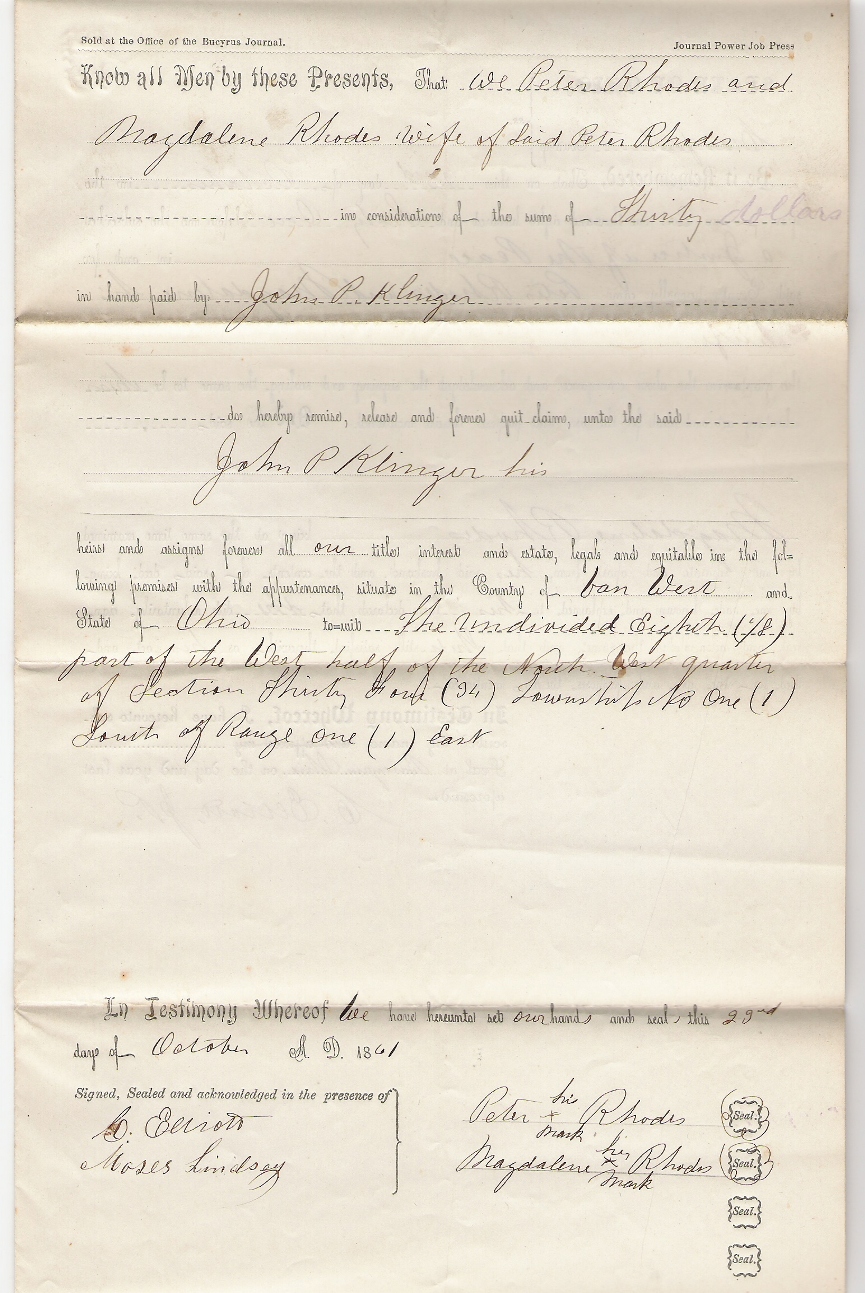 Sold at the Office of the Bucyrus Journal.
Journal Power Job Press
Know all Men by these Presents, That We Peter Rhodes and
Magdalene Rhodes wife of Said Peter Rhodes
in consideration of the sum of Thirty dollars
in hand paid by John P. Klinger
do hereby remise, release and forever quit claim, unto the said
John P Klinger his
heirs and assigns forever all our title interest and estate, legal and equitable in the fol-
lowing premises with the appurtenances, situate in the County of Van West and
State of Ohio to-wit The Undivided Eighth (1/8)
part of the West half of the North West quarter
of Section Thirty Four (34) Township No One (1)
South of Range One (1) East
In Testimony Whereof We have hereunto set our hands and seal this 23rd
day of October A. D. 1861
Signed, Sealed and acknowledged in the presence of
C. Elliott
Moses Lindsey
Peter his x mark Rhodes Seal.
Magdalene her x mark Rhodes Seal.
Seal.
Seal.